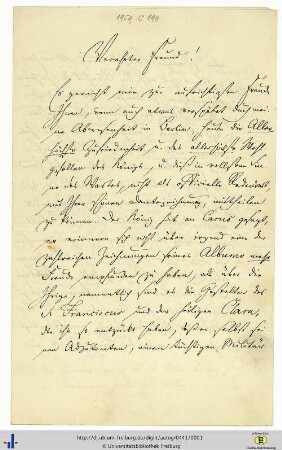 1959 C 190
Verehrter Freund!
Es gereicht mir zur aufrichtigsten Freude
Ihnen, wenn auch etwas verspätet durch mei-
ne Abwesenheit in Berlin, heute die Aller
höchste Zufriedenheit u. das allerhöchste Wohl
gefallen des Königs, u. dieß in vollstem Sin
ne des Wortes, nicht als offizielle Redensart,
mit Ihrer schönen mittheilen
zu können. Der König hat an Carus gesagt,
er erinnere sich nicht über irgend eine der
zahlreichen Zeichnungen seines Albums mehr
Freude empfunden zu haben, als über die
Ihrige, namentlich sind es die Gestalten des
Franciscus und der heiligen Clara,
die ihn so entzückt haben, daß er selbst sei
nem Adjutanten, einem tüchtigen Militär
http://dl.ub.uni-freiburg.de/diglit/autogr0441/0001
Universitätsbibliothek Freiburg